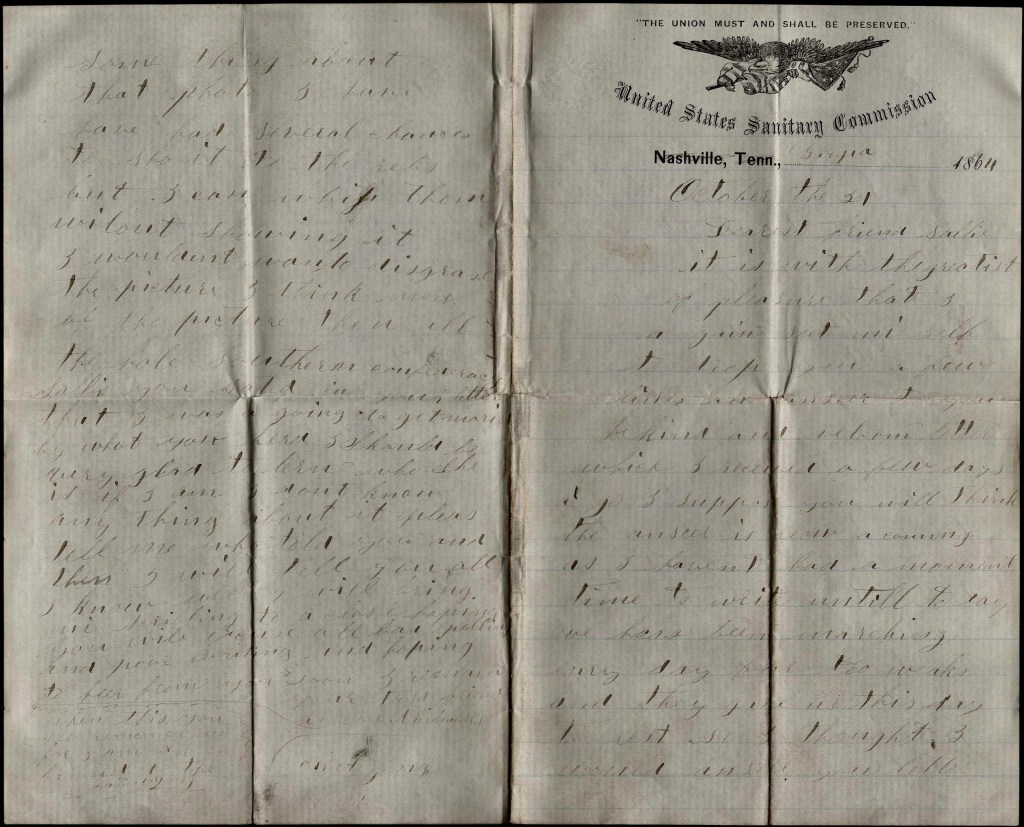 "THE UNION MUST AND SHALL BE PRESERVED."
United States Sanitary Commission
Nashville, Tenn., 1864
October the 21
Dearest Friend Sallie
it is with thegreatist
of pleasure that I
a gain set mi self
to you a few
lines in anser to your
kind and welcom letter
which I received a few days
a go I suppose you will think
the anser is slow a coming
as I havent had a moment
time to writ untill to day
we hav been marching
evry day for too weaks
and they give us this day
to rest so I thought I
would anser your letter
some thing about
that phot I have
have had several chances
to sho it to the rebs
but I can whip them
witout showing it
I wouldent wantto disgrase
the picture I think more
of the picture then all
the hole southern confederacy
Sallie you said in your letter
that I was a going to get marid
by what you herd I should be
very glad to lern who she
is if I am I dont know
any thing about it pleas
tell me who told you and
then I will tell you all
I know well I will bring
mi writing to a close hoping
you will excuse all bad spelling
and poor writing and hoping
to heer from you soon I remain
your
when this you
remember me